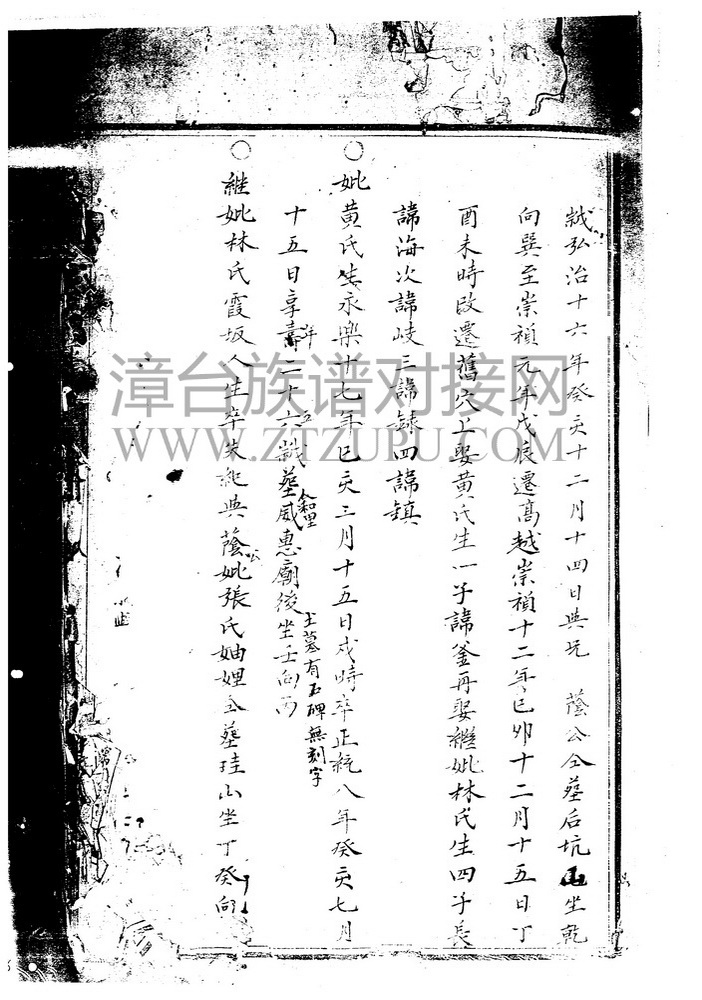 弘治十六年癸亥十二月十四日與兄 蔭公仝塟后坑山坐乾
向巽至崇禎元年戊辰遷高越崇禎十二年己卯十二月十五日丁
酉未時改遷舊穴上娶黃氏生一子諱釜再娶繼妣林氏生四子長
諱海次諱岐三諱録四諱鎮
○妣黃氏生永樂十七年己亥三月十五日戌時卒正統八年癸亥七月
十五日享年壽二十六塟仝和里威惠廟後坐壬向丙
土墓有石碑無刻字
○繼妣林氏霞坂人生卒失紀與蔭公妣張氏妯娌仝塟珪山坐丁癸向
漳台族谱对接网
WWW.ZTZUPU.COM